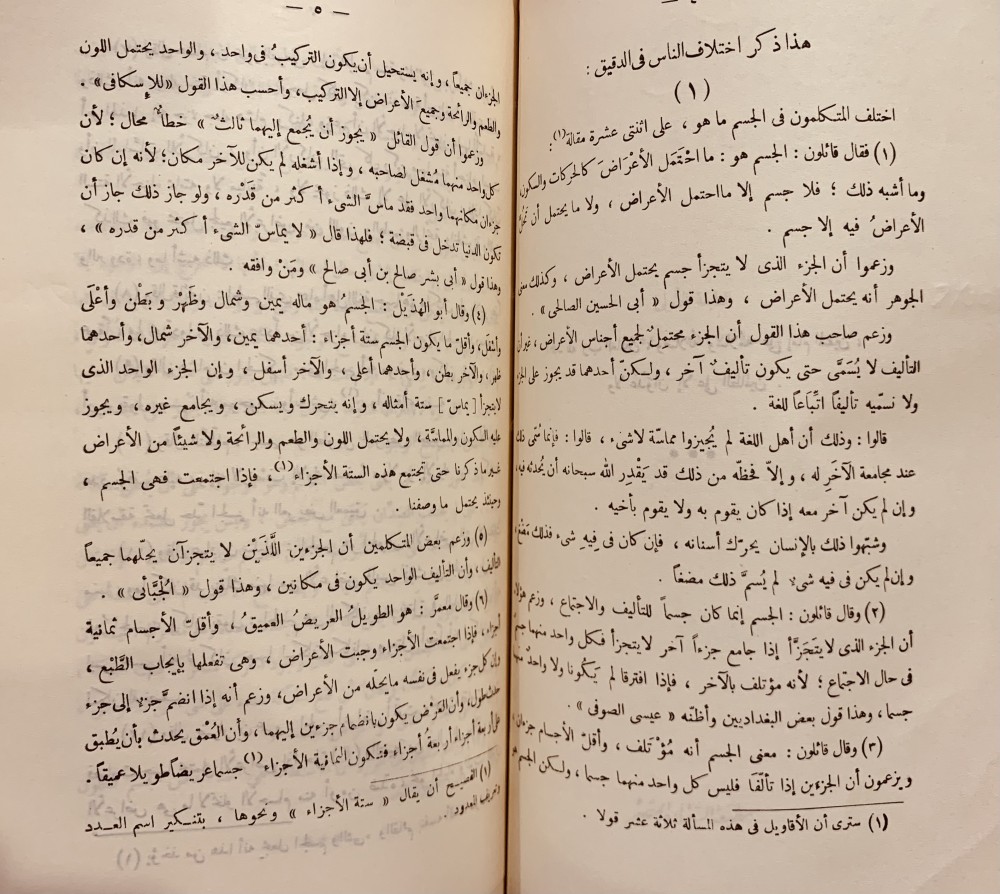 — ٤ —
هذا ذكر اختلاف الناس فى الدقيق :
( ١ )
اختلف المتكلمون فى الجسم ما هو ، على اثنتى عشرة مقالة(١) :
(١) فقال قائلون : الجسم هو : ما احْتَمَل الأعْرَاضَ كالحركات والسكون
وما أشبه ذلك ؛ فلا جسم إلا ما احتمل الأعراض ، ولا ما يحتمل أن تحل
الأعراضُ فيه إلا جسم .
وزعموا أن الجزء الذى لا يتجزأ جسم يحتمل الأعراض ، وكذلك معنى
الجوهر أنه يحتمل الأعراض ، وهذا قول « أبى الحسين الصالحى » .
وزعم صاحب هذا القول أن الجزء محتمِلٌ لجميع أجناس الأعراض ، غير أن
التأليف لا يُسَمَّى حتى يكون تأليفٌ آخر ، ولكنّ أحدهما قد يجوز على الجزء
ولا نسمّيه تأليفاً اتِّبَاعاً للغة .
قالوا : وذلك أن أهل اللغة لم يُجيزوا مماسّة لاشىء ، قالوا : فإنما سُمّى ذلك
عند مجامعة الآخَرِ له ، و إلاّ فحظّه من ذلك قد يَقْدِر الله سبحانه أن يُحدثه فيه ،
وإن لم يكن آخر معه إذا كان يقوم به ولا يقوم بأخيه .
وشبّهوا ذلك بالإنسان يحرّك أسنانه ، فإن كان فى فِيهِ شىء فذلك مَضْغٌ ،
وإن لم يكن فى فيه شىء لم يُسمَّ ذلك مضغاً .
(٢) وقال قائلون : الجسم إنما كان جسماً للتأليف والاجتماع ، وزعم هؤلاء
أن الجزء الذى لا يتَجَزَّأ إذا جامع جزءاً آخر لا يتجزأ فكل واحد منهما جسم
فى حال الاجتماع ؛ لأنه مؤتلف بالآخر ، فإذا افترقا لم يَكُونا ولا واحدٌ منهما
جسما ، وهذا قول بعض البغداديين وأظنّه « عيسى الصوفى » .
(٣) وقال قائلون : معنى الجسم أنه مُؤْتَلف ، وأقلّ الأجسام جزءان ،
و يزعمون أن الجزءين إذا تألّفَا فليس كل واحد منهما جسما ، ولكن الجسم هو
(١) سترى أن الأقاويل فى هذه المسألة ثلاثة عشر قولا .
— ٥ —
الجزءان جميعاً ، وإنه يستحيل أن يكون التركيبُ فى واحد ، والواحد يحتمل اللون
والطعم والرائحة وجميعَ الأعراض إلا التركيب ، وأحسب هذا القول « للإسكافى » .
وزعموا أن قول القائل « يجوز أن يُجمع إليهما ثالث » خطأٌ محال ؛ لأن
كل واحد منهما مُشغل لصاحبه ، و إذا أشغله لم يكن للآخر مكان ؛ لأنه إن كان
جزءان مكانهما واحد فقد ماسَّ الشىء أكثر من قَدْره ، ولو جاز ذلك جاز أن
تكون الدنيا تدخل فى قبضة ؛ فلهذا قال « لا يماسّ الشىء أكثر من قدره » ،
وهذا قول « أبى بشر صالح بن أبى صالح » ومَنْ وافقه .
(٤) وقال أبو الهُذَيْل : الجسمُ هو ماله يمين وشمال وظَهْر و بَطْن وأَعْلَى
وأسْفل ، وأقلّ ما يكون الجسم ستة أجزاء : أحدهما يمين ، والآخر شمال ، وأحدهما
ظهر ، والآخر بطن ، وأحدهما أعلى ، والآخر أسفل ، و إن الجزء الواحد الذى
لا يتجزأ [ يماسّ ] ستة أمثاله ، و إنه يتحرك و يسكن ، و يجامع غيره ، و يجوز
عليه السكون والمماسّة ، ولا يحتمل اللون والطعم والرائحة ولا شيئاً من الأعراض
غير ما ذكرنا حتى تجتمع هذه الستة الأجزاء(١) ، فإذا اجتمعت فهى الجسم ،
وحينئذ يحتمل ما وصفنا .
(٥) وزعم بعض المتكلمين أن الجزءين اللَّذَيْنِ لا يتجزآن يحلّهما جميعاً
التأليف ، وأن التأليف الواحد يكون فى مكانين ، وهذا قول « الجُبَّائى » .
(٦) وقال معمَّر : هو الطويلُ العريضُ العميقُ ، وأقلّ الأجسام ثمانية
أجزاء ، فإذا اجتمعت الأجزاء وجبت الأعراض ، وهى تفعلها بإيجاب الطَّبْع ،
وإن كل جزء يفعل فى نفسه ما يحله من الأعراض ، وزعم أنه إذا انضمَّ جزء إلى جزء
حدث طول ، وأن العَرْض يكون بانضمام جزءين إليهما ، وأن العُمْق يحدث بأن يُطبق
على أربعة أجزاء أربعةُ أجزاء فتكون الثمانية الأجزاء(١) جسماً عريضاً طويلا عميقاً .
(١) الفصيح أن يقال « ستة الأجزاء » ونحوها ، بتنكير اسم العدد
وتعريف المعدود .